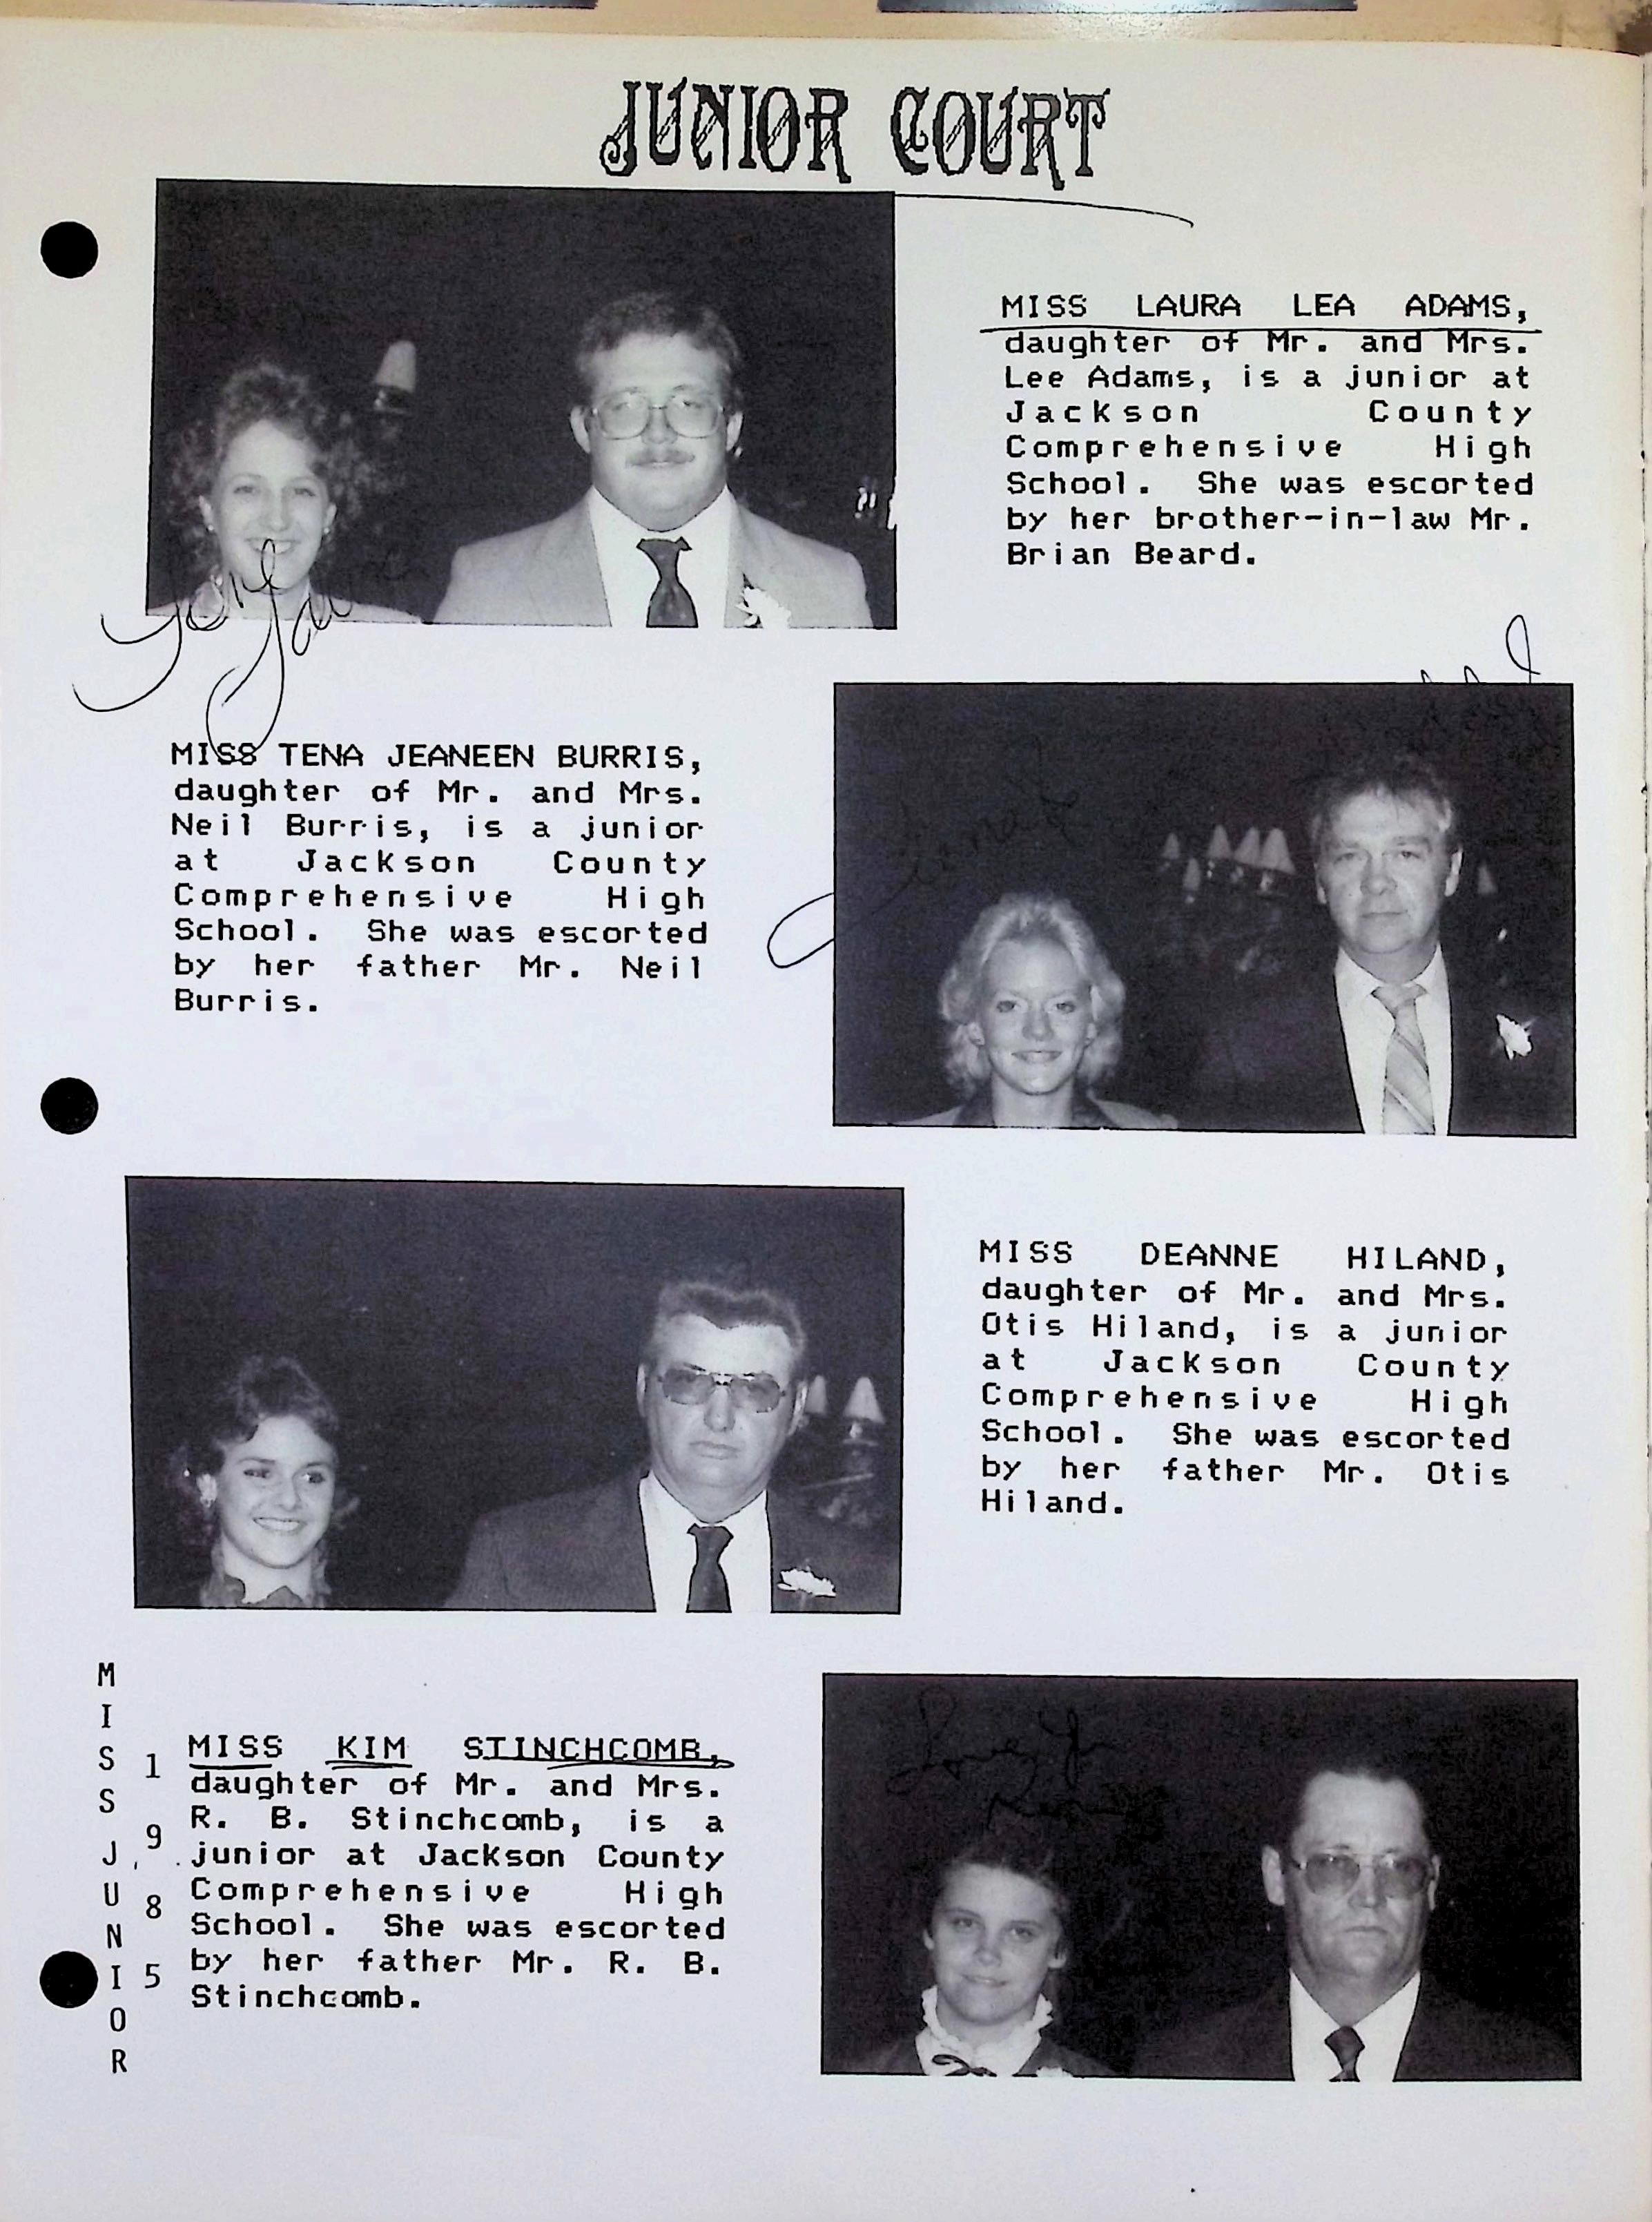 JUNIOR COURT
MISS LAURA LEA ADAMS,
daughter of Mr. and Mrs.
Lee Adams, is a junior at
Jackson County
Comprehensive High
School. She was escorted
by her brother-in-law Mr.
Brian Beard.
MISS TENA JEANEEN BURRIS,
daughter of Mr. and Mrs.
Neil Burris, is a junior
at Jackson County
Comprehensive High
School. She was escorted
by her father Mr. Neil
Burris.
MISS DEANNE HILAND,
daughter of Mr. and Mrs.
Otis Hiland, is a junior
at Jackson County
Comprehensive High
School. She was escorted
by her father Mr. Otis
Hiland.
MISS JUNIOR
1985
MISS KIM STINCHCOMB,
daughter of Mr. and Mrs.
R. B. Stinchcomb, is a
junior at Jackson County
Comprehensive High
School. She was escorted
by her father Mr. R. B.
Stinchcomb.